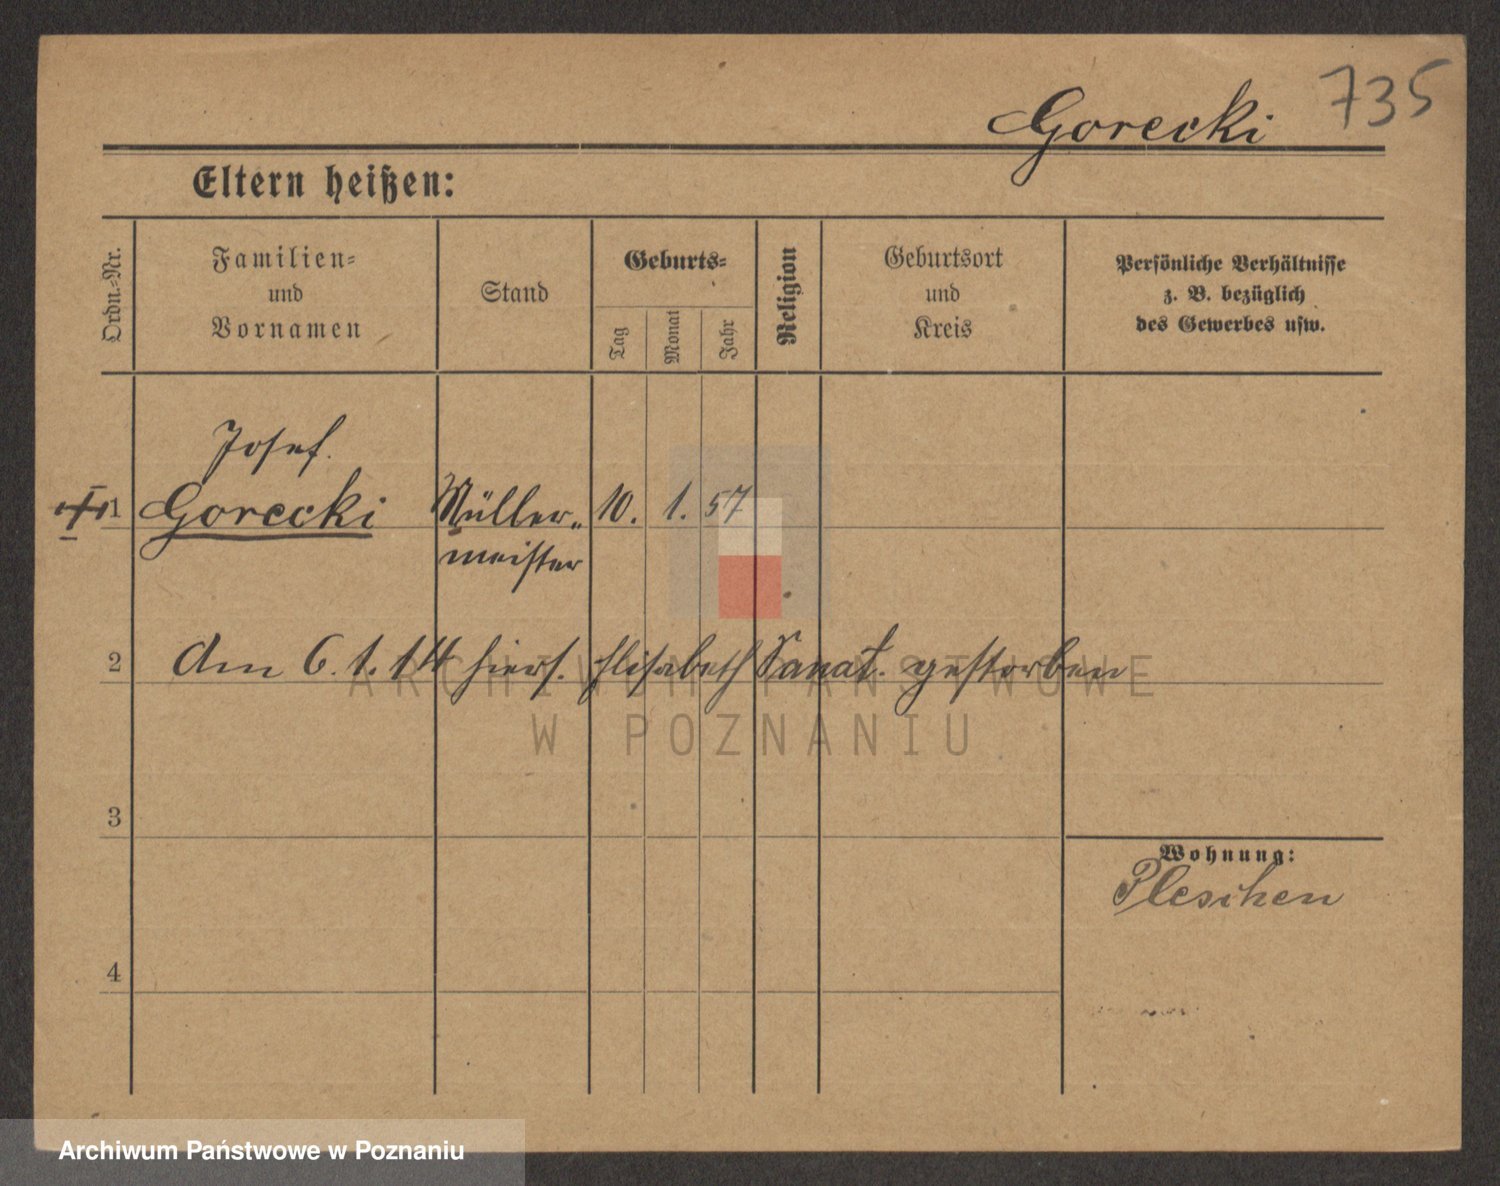 735
Gorecki
Eltern heißen:
Ordn.-Nr.
Familien-
und
Vornamen
Stand
Geburts-
Tag
Monat
Jahr
Religion
Geburtsort
und
Kreis
Persönliche Verhältnisse
z. B. bezüglich
des Gewerbes usw.
Josef.
1 Gorecki Müller- 10. 1. 57
meister
2 Am 6.1.14 hiers. Elisabeth Sanat. gestorben
ARCHIWUM PAŃSTWOWE
W POZNANIU
3
Wohnung:
Pleschen
4
Archiwum Państwowe w Poznaniu